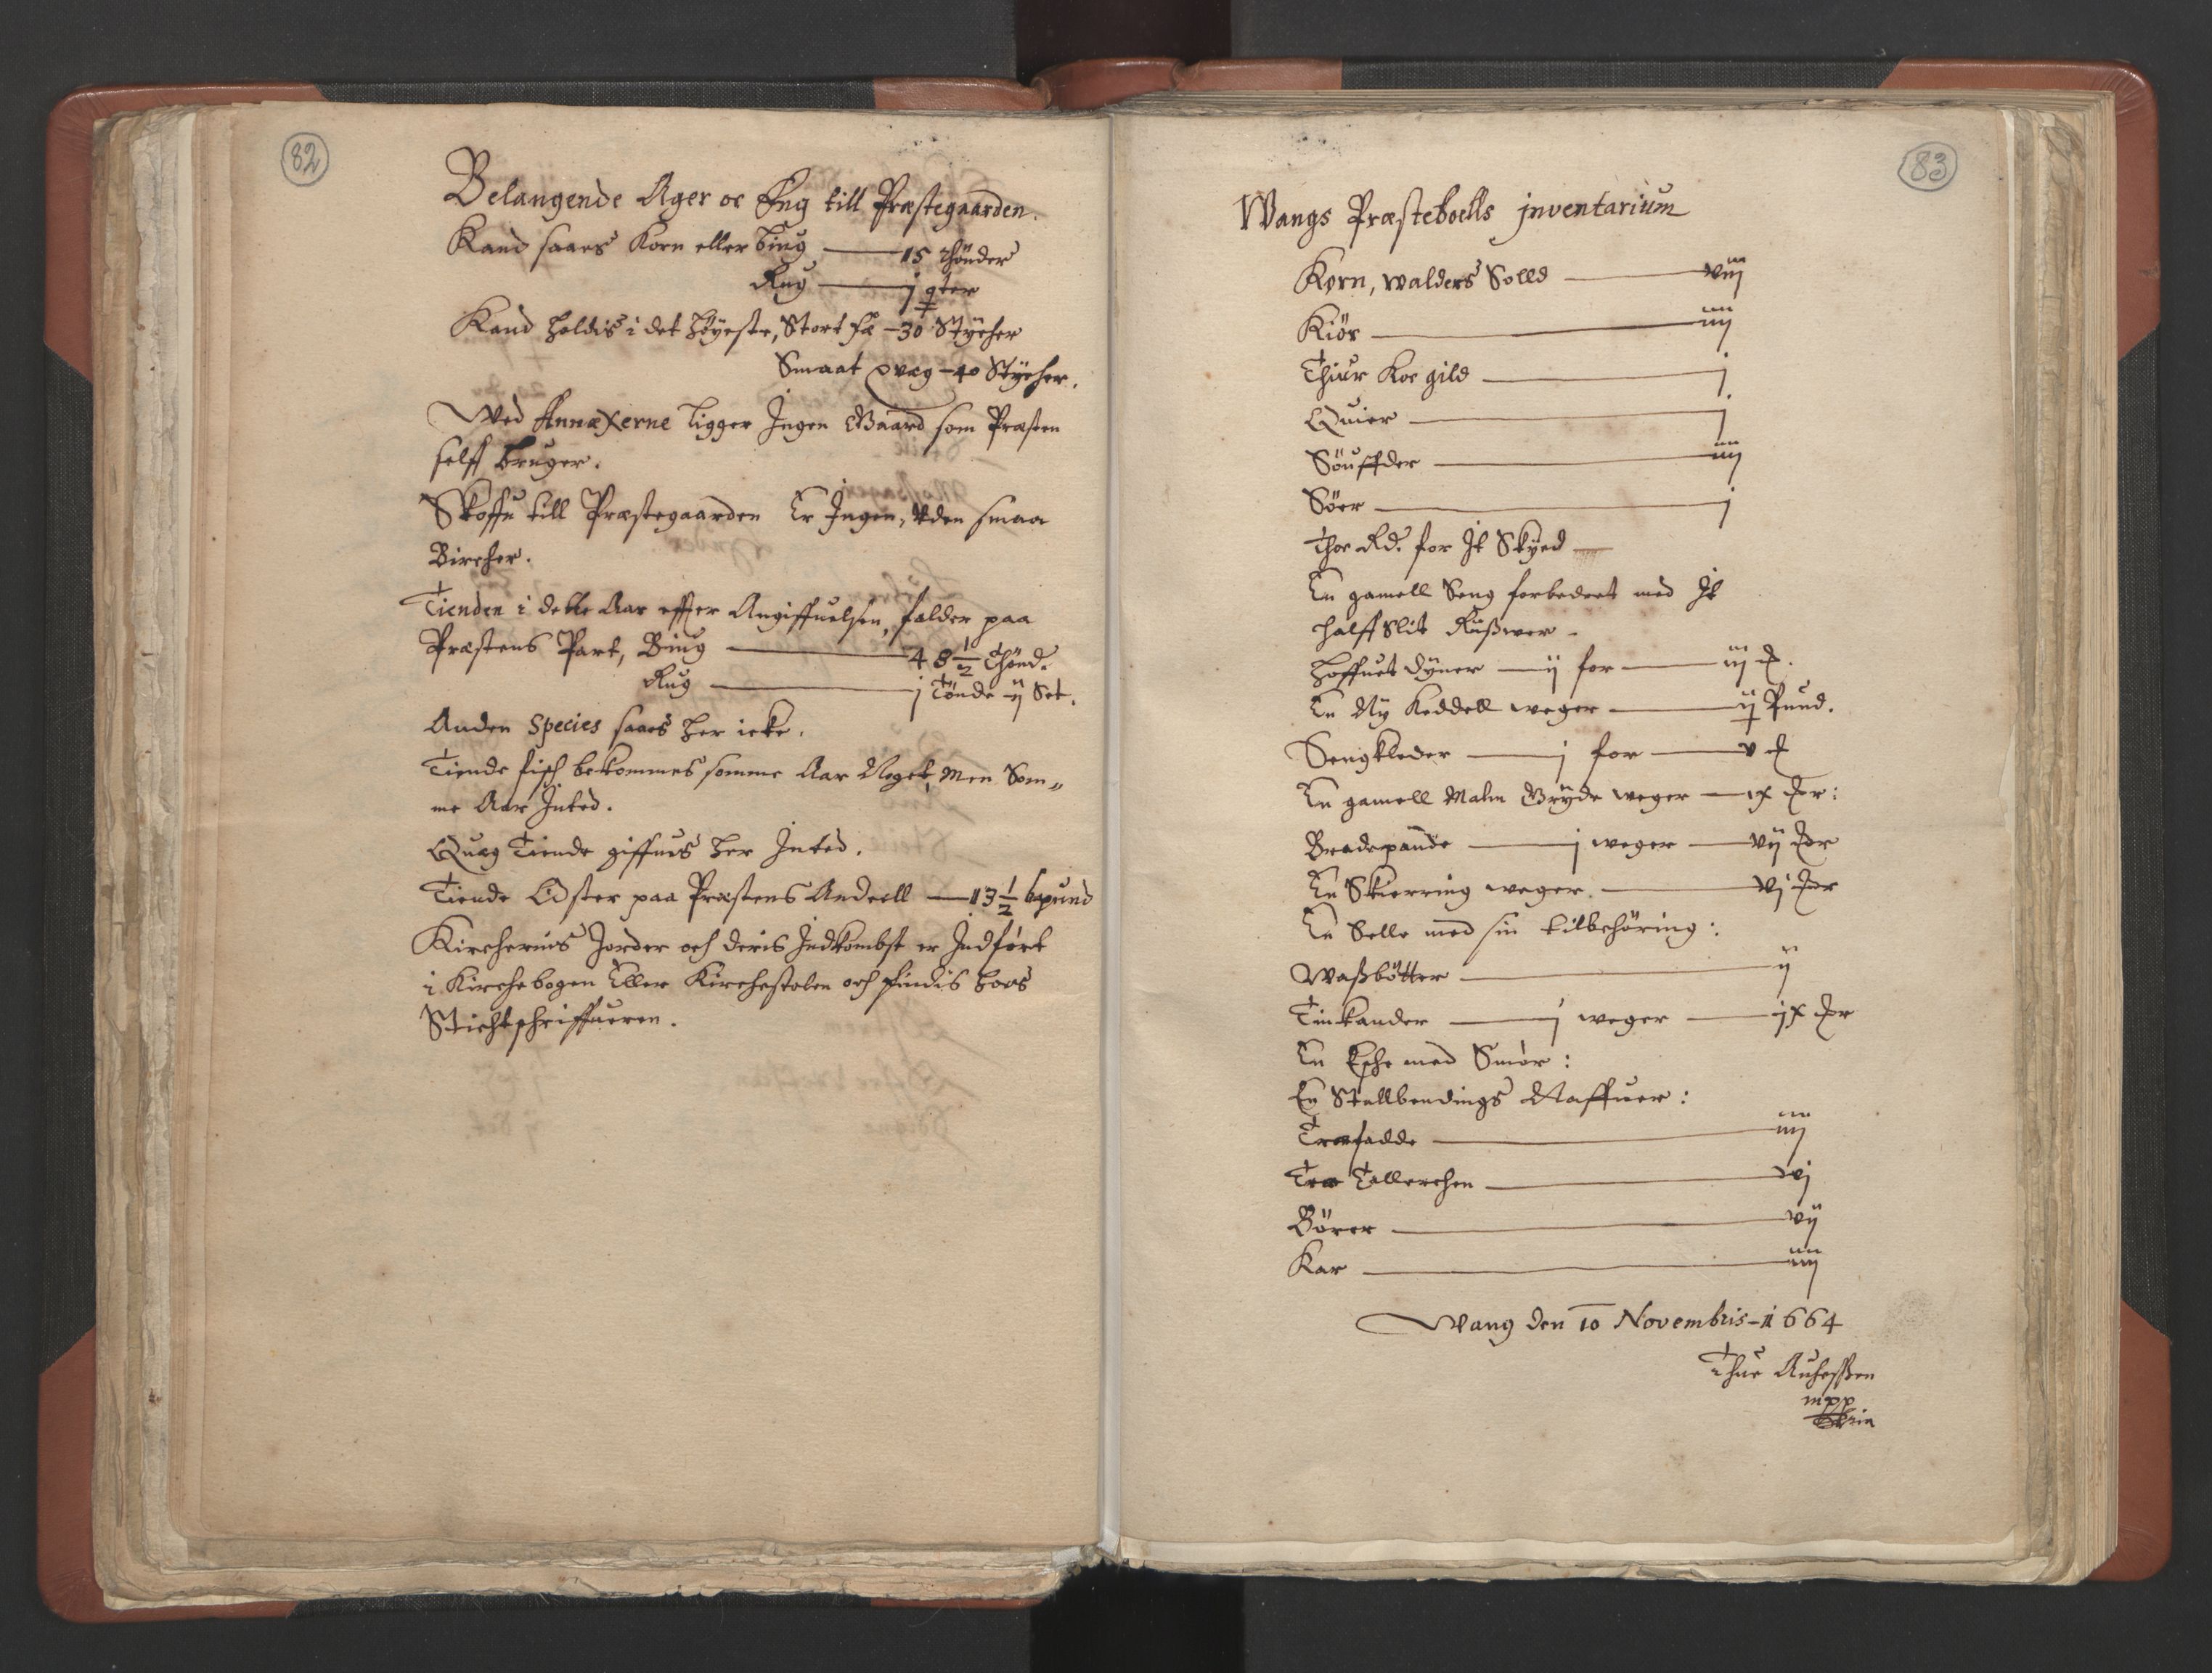 82
Belangende Ager oc Eng till Præstegaarden.
Kand saaes Korn eller Biug — 15 thönder
Rug — j qter
Kand holdis i det höyeste, Stort fæ – 30 Stycher
Smaat qvæg – 40 Stycher.
Wed Annæxerne ligger Ingen Gaard som Præsten
self bruger.
Skoffu till Præstegaarden Er Ingen, uden smaa
Bircher.
Tienden i dette Aar effter Angiffuelsen, falder paa
Præstens Part, Biug — 48 1/2 thönd.
Rug — j Tönde ij Set.
Anden Species saaes her icke.
Tiende fisch bekommes somme Aar Noget, Men Som„
me Aar Inted.
Quæg Tiende giffues her Inted.
Tiende Oster paa Præstens Andeell — 13 1/2 bpund
Kirchernis Jorder och deris Indkombst er Indfört
i Kirchebogen Eller Kirchestolen och findis hoes
Stichtschriffueren.
83
Wangs Præsteboells inventarium
Korn, walders Solld — viij
Kiör — iiij
Thiur Koe gild — j
Quier — j
Söuffder — iiij
Söer — j
Thoe Rd. for It Skyed —
En gamell Seng forbedret med It
halff slit
Hoffuet dyner — ij for — iij d.
En Ny Keddell weger — ij Pund.
Sengkleder — j for — v d
En gamell Malm Gryde weger — ix
Bradepande — j weger — vij
En Skierring weger — vj
En Selle med sin tilbehöring:
Waßbötter — ij
Tinkander — j weger — ix
En Esche med Smör:
En Stallbendings Naffuer:
Træfadde — iiij
Træ Tallerchen — vj
Börer — vij
Kar — iiij
Wang den 10 Novembris – 1664
Thue
mpp